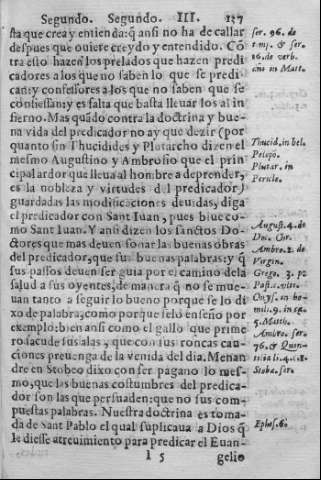 Segundo. Segundo. III. 137
sta que crea y entienda: q̃ ansi no ha de callar
despues que quiere creydo y entendido. Cõ
tra esto hazen los prelados que hazen predi
cadores a los que no saben lo que se predi
can: y confessores a los que no saben que se
confiessan: y es falta que basta lleuar los al in
fierno. Mas quãdo contra la doctrina y bue-
na vida del predicador no ay que dezir (por
quanto sin Thucidides y Plutarcho dizen el
mesmo Augustino y Ambrosio que el prin
cipal ardor que lleua al hombre a deprender,
es la nobleza y virtudes del predicador)
guardadas las modificaciones deuidas, diga
el predicador con Sant Iuan, pues biue co-
mo Sant Iuan. Y ansi dizen los sanctos Do-
ctores que mas deuen sonar las buenas obras
del predicador, que sus buenas palabras: y q̃
sus passos deuen ser guia por el camino dela
salud a sus oyentes, de manera q̃ no se mue-
uan tanto a seguir lo bueno porque se lo di
xo de palabra, como porque selo enseño por
exemplo: bien ansi como el gallo que prime
ro sacude sus alas, que con sus roncas cau-
ciones preuenga de la venida del dia. Menan
dre en Stobeo dixo con ser pagano lo mes-
mo, que las buenas costumbres del predica-
dor son las que persuaden: que no sus com-
puestas palabras. Nuestra doctrina es toma-
da de Sant Pablo el qual suplicaua a Dios q̃
le diesse atreuimiento para predicar el Euan-
I 5 gelio
ser. 96. de
temp. & ser.
16. de verb.
Thucid. in bel.
Pelopo.
Plutar. in
Pericle.
August. 4. de
Doc. Chr.
Ambro. 2. de
Virgin.
Grego. 3. p.
Chrys. in ho-
mil. 9. in
5. Matth.
Ambro. ser.
76. & Quin-
Stoba. ser.
Ephes. 6.